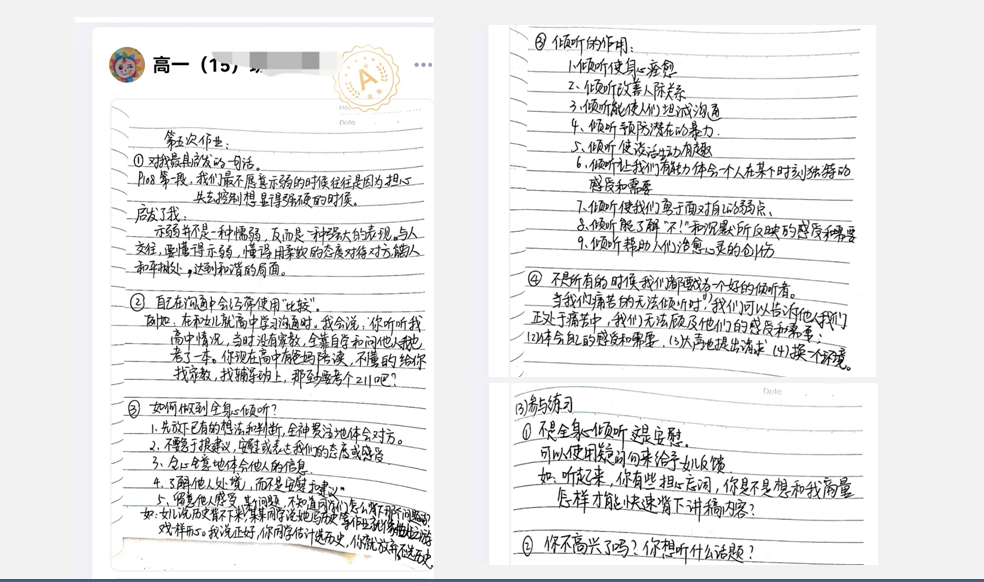 高一（15）班
A
Date
第五次作业：
① 对我最具启发的一句话。
P108 第一段，我们最不愿意示弱的时候往往是因为担心
失去控制想显得强硬的时候。
启发了我：
示弱并不是一种懦弱，反而是一种强大的表现，与人
交往，要懂得示弱，懂得用柔软的态度对待对方，能够人
和平相处，达到和谐的局面。
② 自己在沟通中会经常使用“比较”。
例如：在和女儿就高中学习沟通时，我会说，你听听我
高中情况，当时没有家教，全靠自学和问他人我也
考了一本。你现在高中有爸妈陪读，不懂的给你
找家教，找辅导班上，那至少要考个211吧？
③ 如何做到全身心倾听？
1. 先放下已有的想法和判断，全神贯注地体会对方。
2. 不要急于提建议，安慰或表达我们的态度或感受
3、全心全意地体会他人的信息.
4. 了解他人处境，而不是安慰和建议”
5、留意他人感受，
如：女儿说历史背不下来，某某同学说她
戏一样开心。我说正好，你同学估计选历史，你就放弃不选历史
③ 倾听的作用：
1. 倾听使身心痊愈
2、倾听改善人际关系
3. 倾听能使人们坦诚沟通
4、倾听预防潜在的暴力.
5. 倾听使谈话生动有趣
6. 倾听让我们有能力体会一个人在某个时刻独特的
感受和需要
7. 倾听使我们勇于面对自己的弱点、
8. 倾听能了解“不！”和沉默所反映的感受和需要
9. 倾听帮助人们治愈心灵的创伤
④ 不是所有的时候我们都要成为一个好的倾听者。
当我们痛苦的无法倾听时：(1)我们可以告诉他人我们
正处于痛苦中，我们无法顾及他们的感受和需要；
(2)体会自己的感受和需要 (3)大声地提出请求 (4)换一个环境。
Date
(3)参与练习
① 不是全身心倾听，这是安慰.
可以使用疑问句来给予女儿反馈.
如：听起来，你有些担心忘词，你是不是想和我商量
怎样才能快速背下讲稿内容？
② 你不高兴了吗？你想听什么话题？